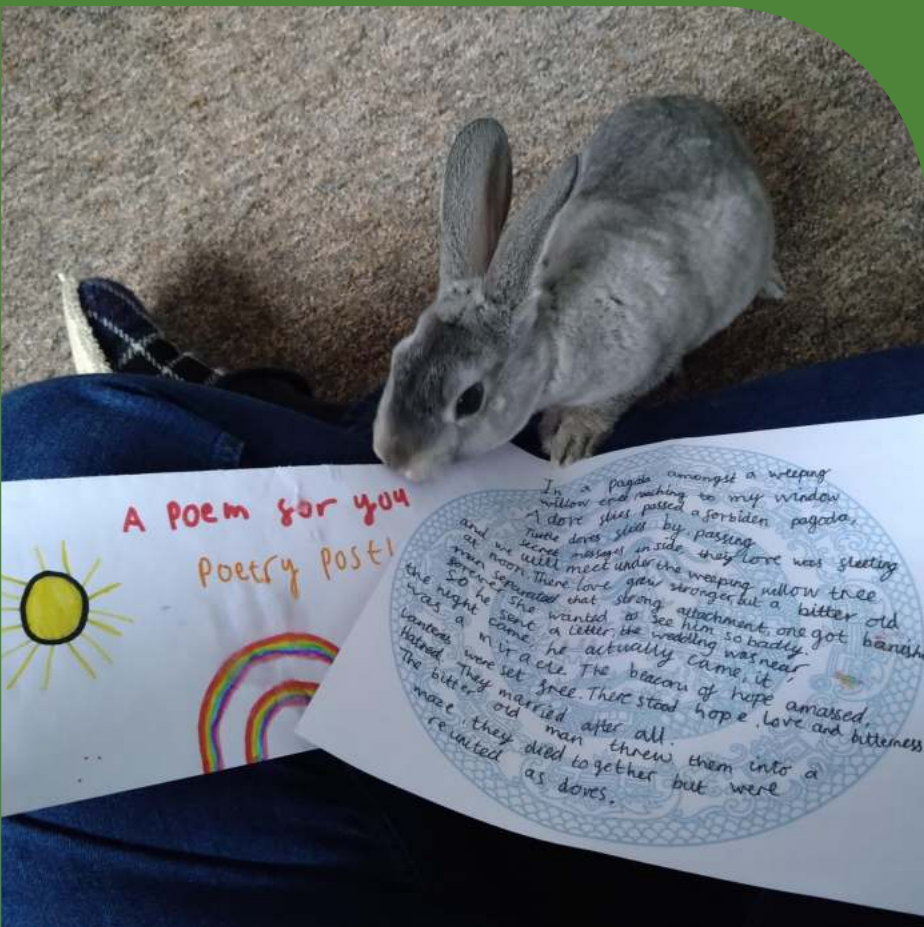 A Poem for you
Poetry Post!
In a pagoda amongst a weeping
willow and reaching to my window
A dove slies passed a forbiden pagoda,
Turtle doves slies by, passing
secret messages inside, they Love was fleeting
and we will meet under the weeping willow tree
as noon. There love grew stronger but a bitter old
man separated that strong attachment, one got banish
forever she wanted to see him so badly.
So he sent a letter, the wedding was near,
the night came he actually came, it
was a miracle. The beacon of hope amassed,
Lanterns were set free. There stood hope, love and bitterness
Hatred. They married after all.
The bitter old man threw them into a
maze, they died together but were
reunited as doves.